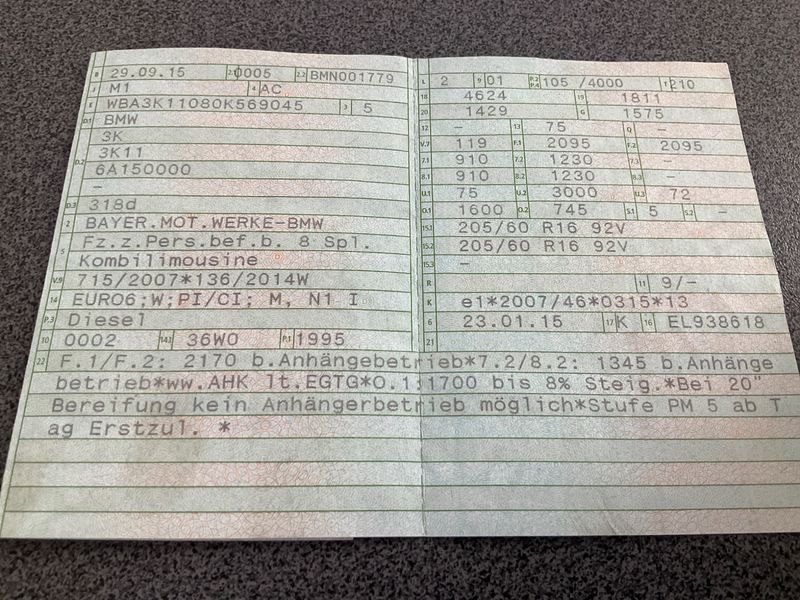 B 29.09.15 2.1 0005 2.2 BMN001779
J M1 4 AC
E WBA3K11080K569045 3 5
D.1 BMW
3K
D.2 3K11
6A150000
–
D.3 318d
2 BAYER.MOT.WERKE-BMW
5 Fz.z.Pers.bef.b. 8 Spl.
Kombilimousine
V.9 715/2007*136/2014W
14 EURO6;W;PI/CI; M, N1 I
P.3 Diesel
10 0002 14.1 36W0 P.1 1995
L 2 9 01 P.2 P.4 105 /4000 T 210
18 4624 19 1811
20 1429 G 1575
12 – 13 75 Q –
V.7 119 F.1 2095 F.2 2095
7.1 910 7.2 1230 7.3 –
8.1 910 8.2 1230 8.3 –
U.1 75 U.2 3000 U.3 72
O.1 1600 O.2 745 S.1 5 S.2 –
15.1 205/60 R16 92V
15.2 205/60 R16 92V
15.3 –
R 11 9/–
K e1*2007/46*0315*13
6 23.01.15 17 K 16 EL938618
21
22 F.1/F.2: 2170 b.Anhängebetrieb*7.2/8.2: 1345 b.Anhänge
betrieb*ww.AHK lt.EGTG*O.1:1700 bis 8% Steig.*Bei 20"
Bereifung kein Anhängerbetrieb möglich*Stufe PM 5 ab T
ag Erstzul. *